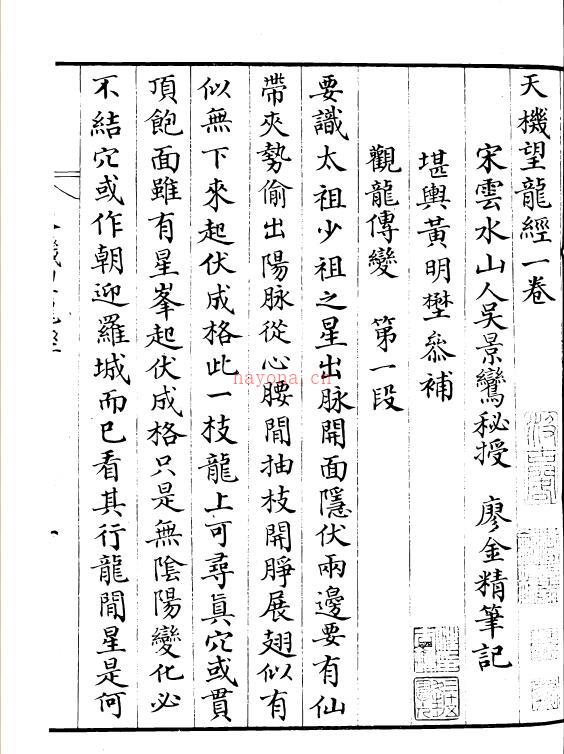 天機望龍經一卷
宋雲水山人吳景鸞秘授　廖金精筆記
堪輿黃明埜叅補
觀龍傳變　第一段
要識太祖少祖之星出脉開面隱伏兩邊要有仙
帶夾勢偷出陽脉從心腰間抽枝開𦙫展翅似有
似無下來起伏成格此一枝龍上可尋眞穴或貫
頂飽面雖有星峯起伏成格只是無陰陽變化必
不結穴或作朝迎羅城而已看其行龍間星是何
nayona.cn